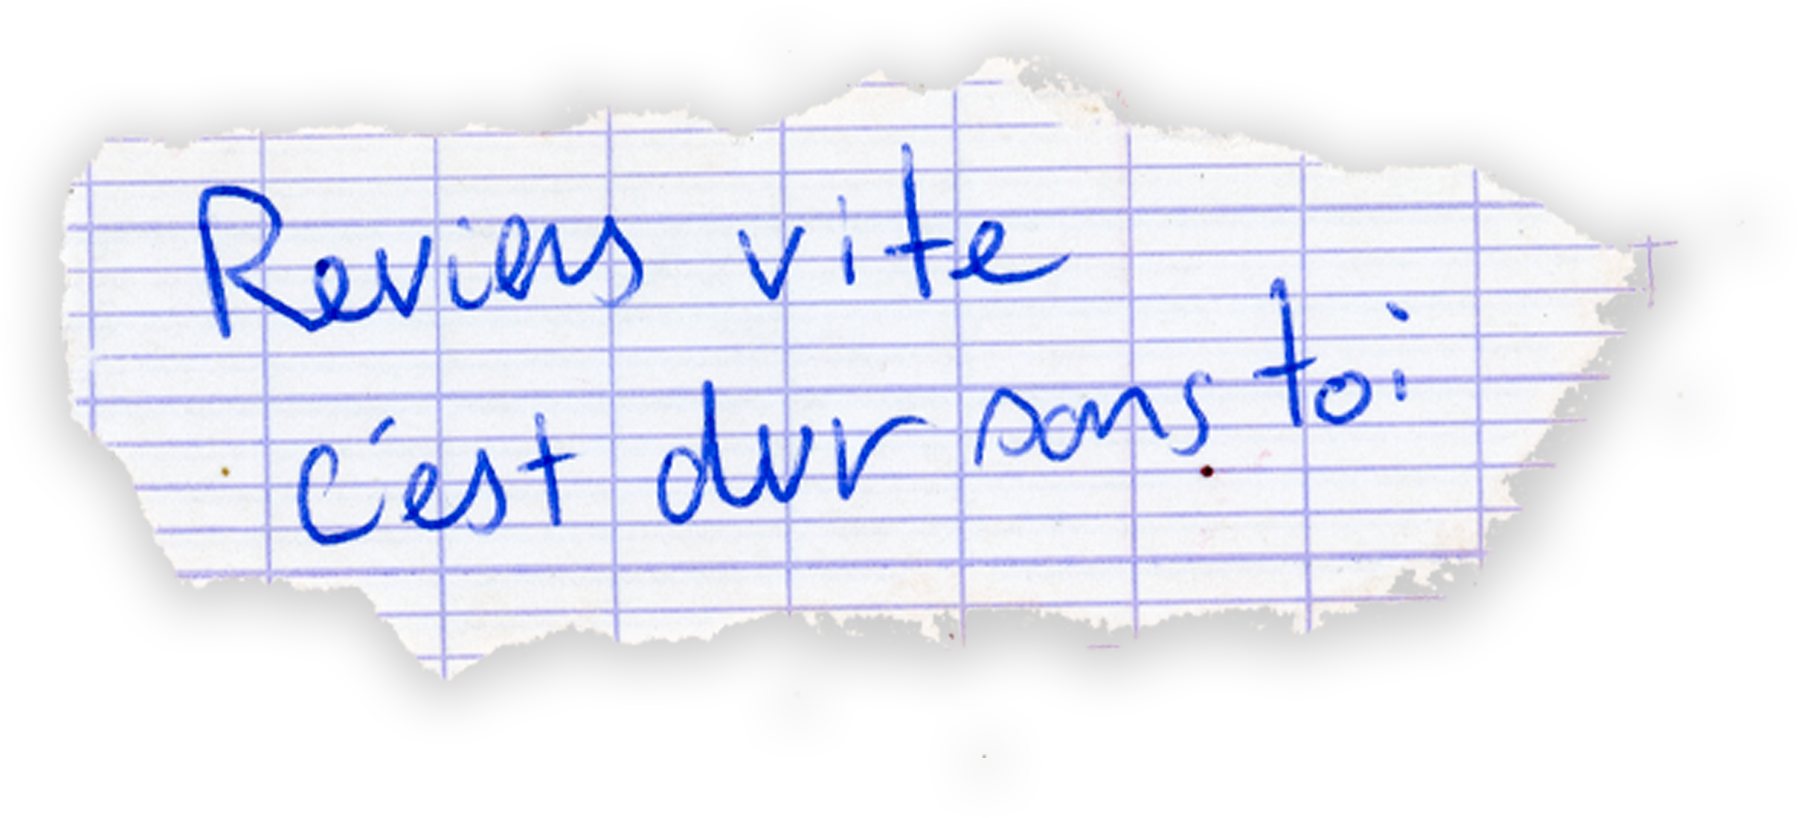 Reviens vite
c'est dur sans toi